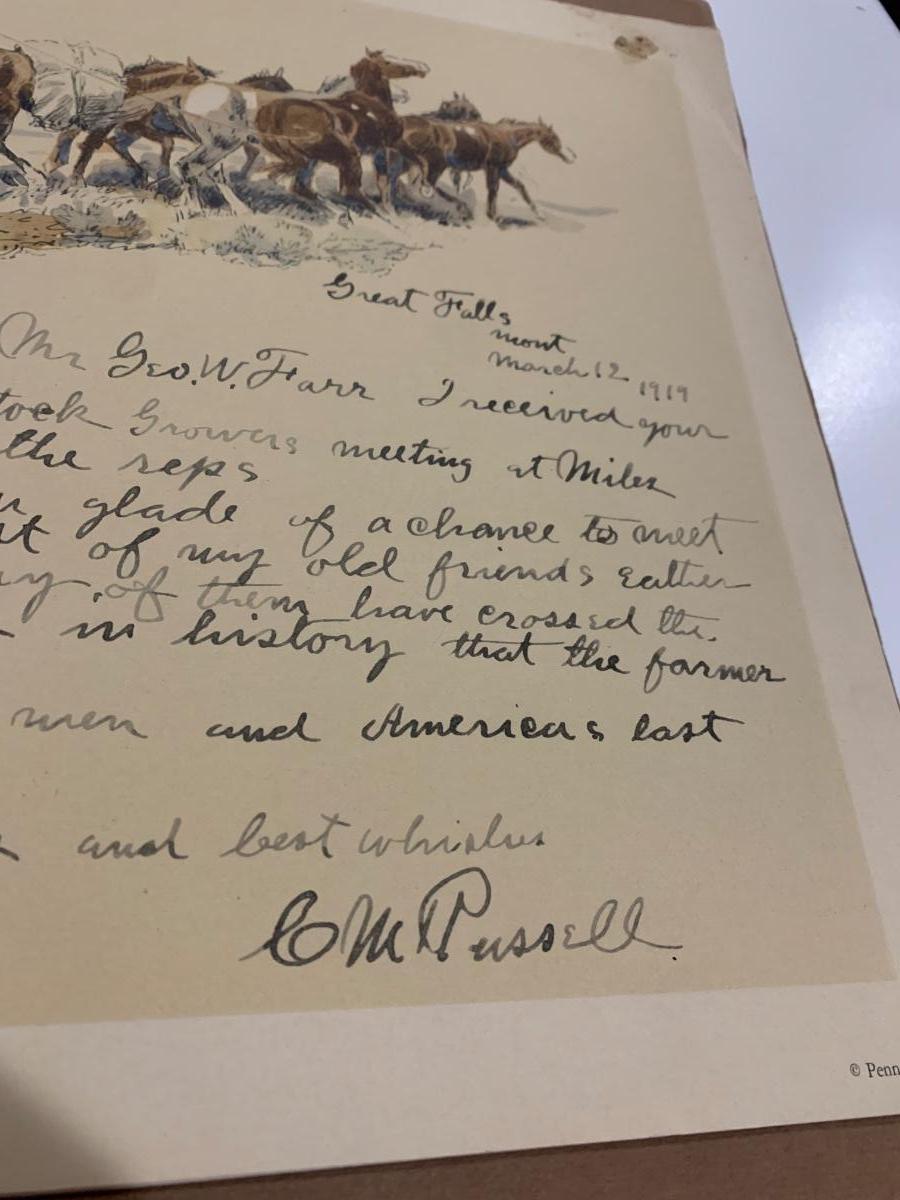 Great Falls
Mont
March 12 1919
Mr Geo. W. Farr I received your
tock Growers meeting at Miles
the reps
glade of a chance to meet
of my old friends eather
of them have crossed the
in history that the farmer
men and Americas last
and best whishes
C M Russell
© Penn